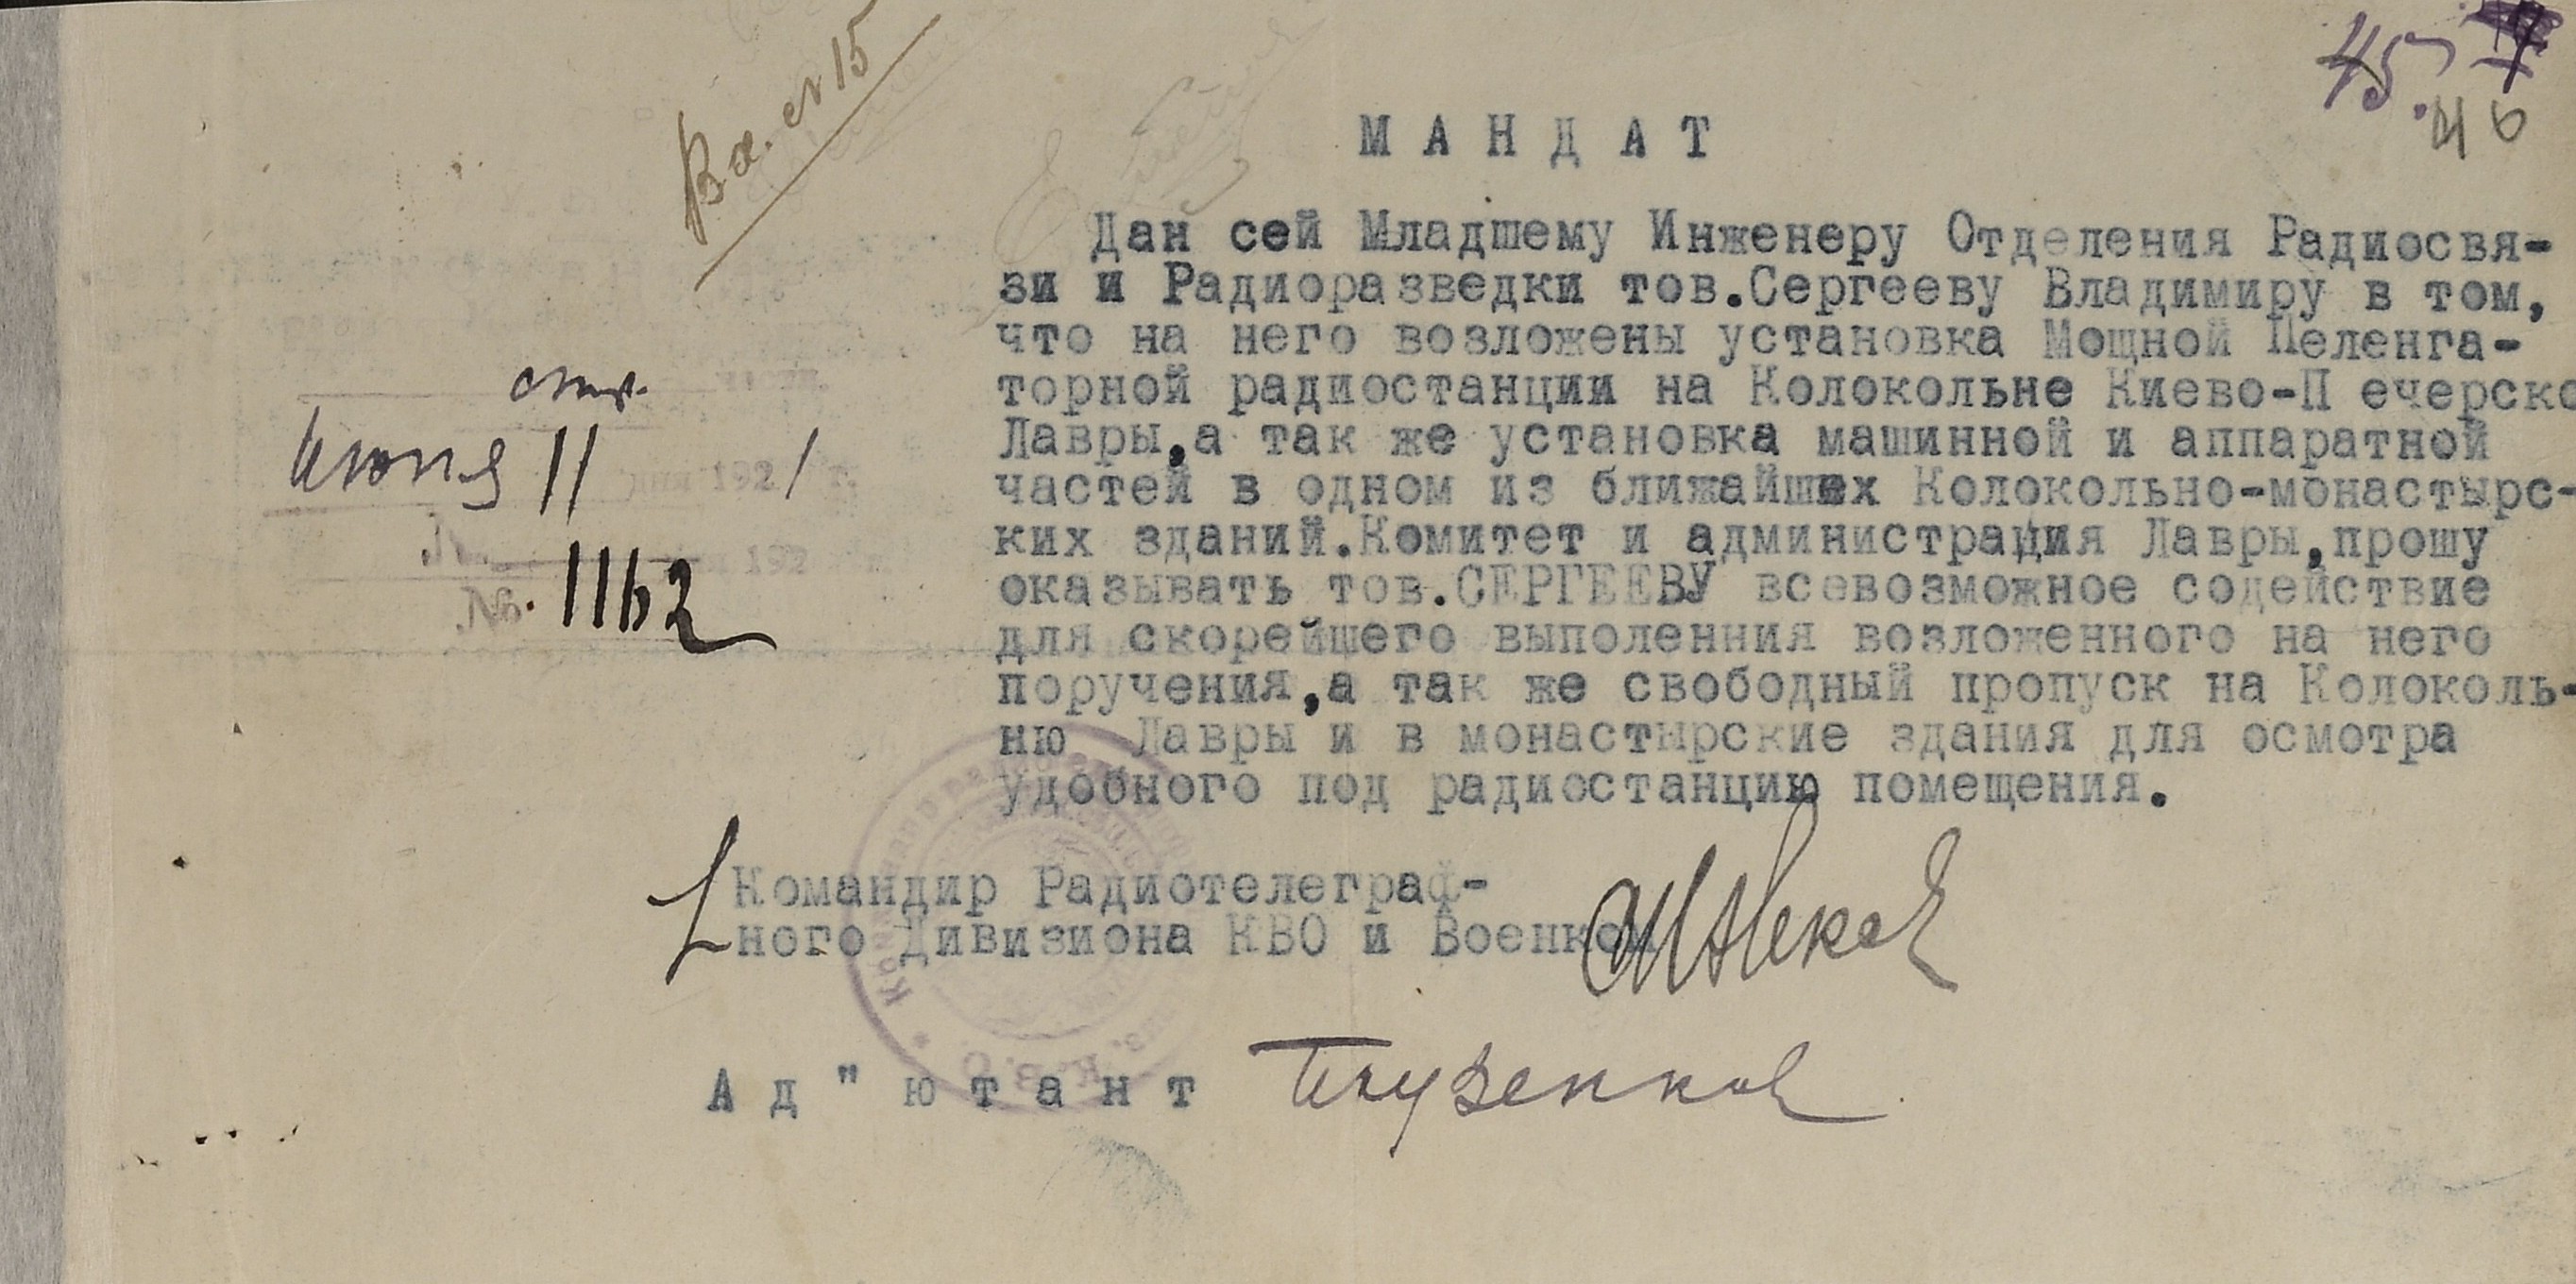 Вх. № 15
45
46
МАНДАТ
Дан сей Младшему Инженеру Отделения Радиосвя-
зи и Радиоразведки тов.Сергееву Владимиру в том,
что на него возложены установка Мощной Пеленга-
торной радиостанции на Колокольне Киево-П ечерско
Лавры,а так же установка машинной и аппаратной
частей в одном из ближайших Колокольно-монастырс-
ких зданий.Комитет и администрация Лавры,прошу
оказывать тов.СЕРГЕЕВУ всевозможное содействие
для скорейшего выполенния возложенного на него
поручения,а так же свободный пропуск на Колоколь-
ню Лавры и в монастырские здания для осмотра
удобного под радиостанцию помещения.
июня 11 дня 1921 г.
192
№. 1162
Командир Радиотелеграф-
ного Дивизиона КВО и Военком
Ад"ютант
К.В.О.